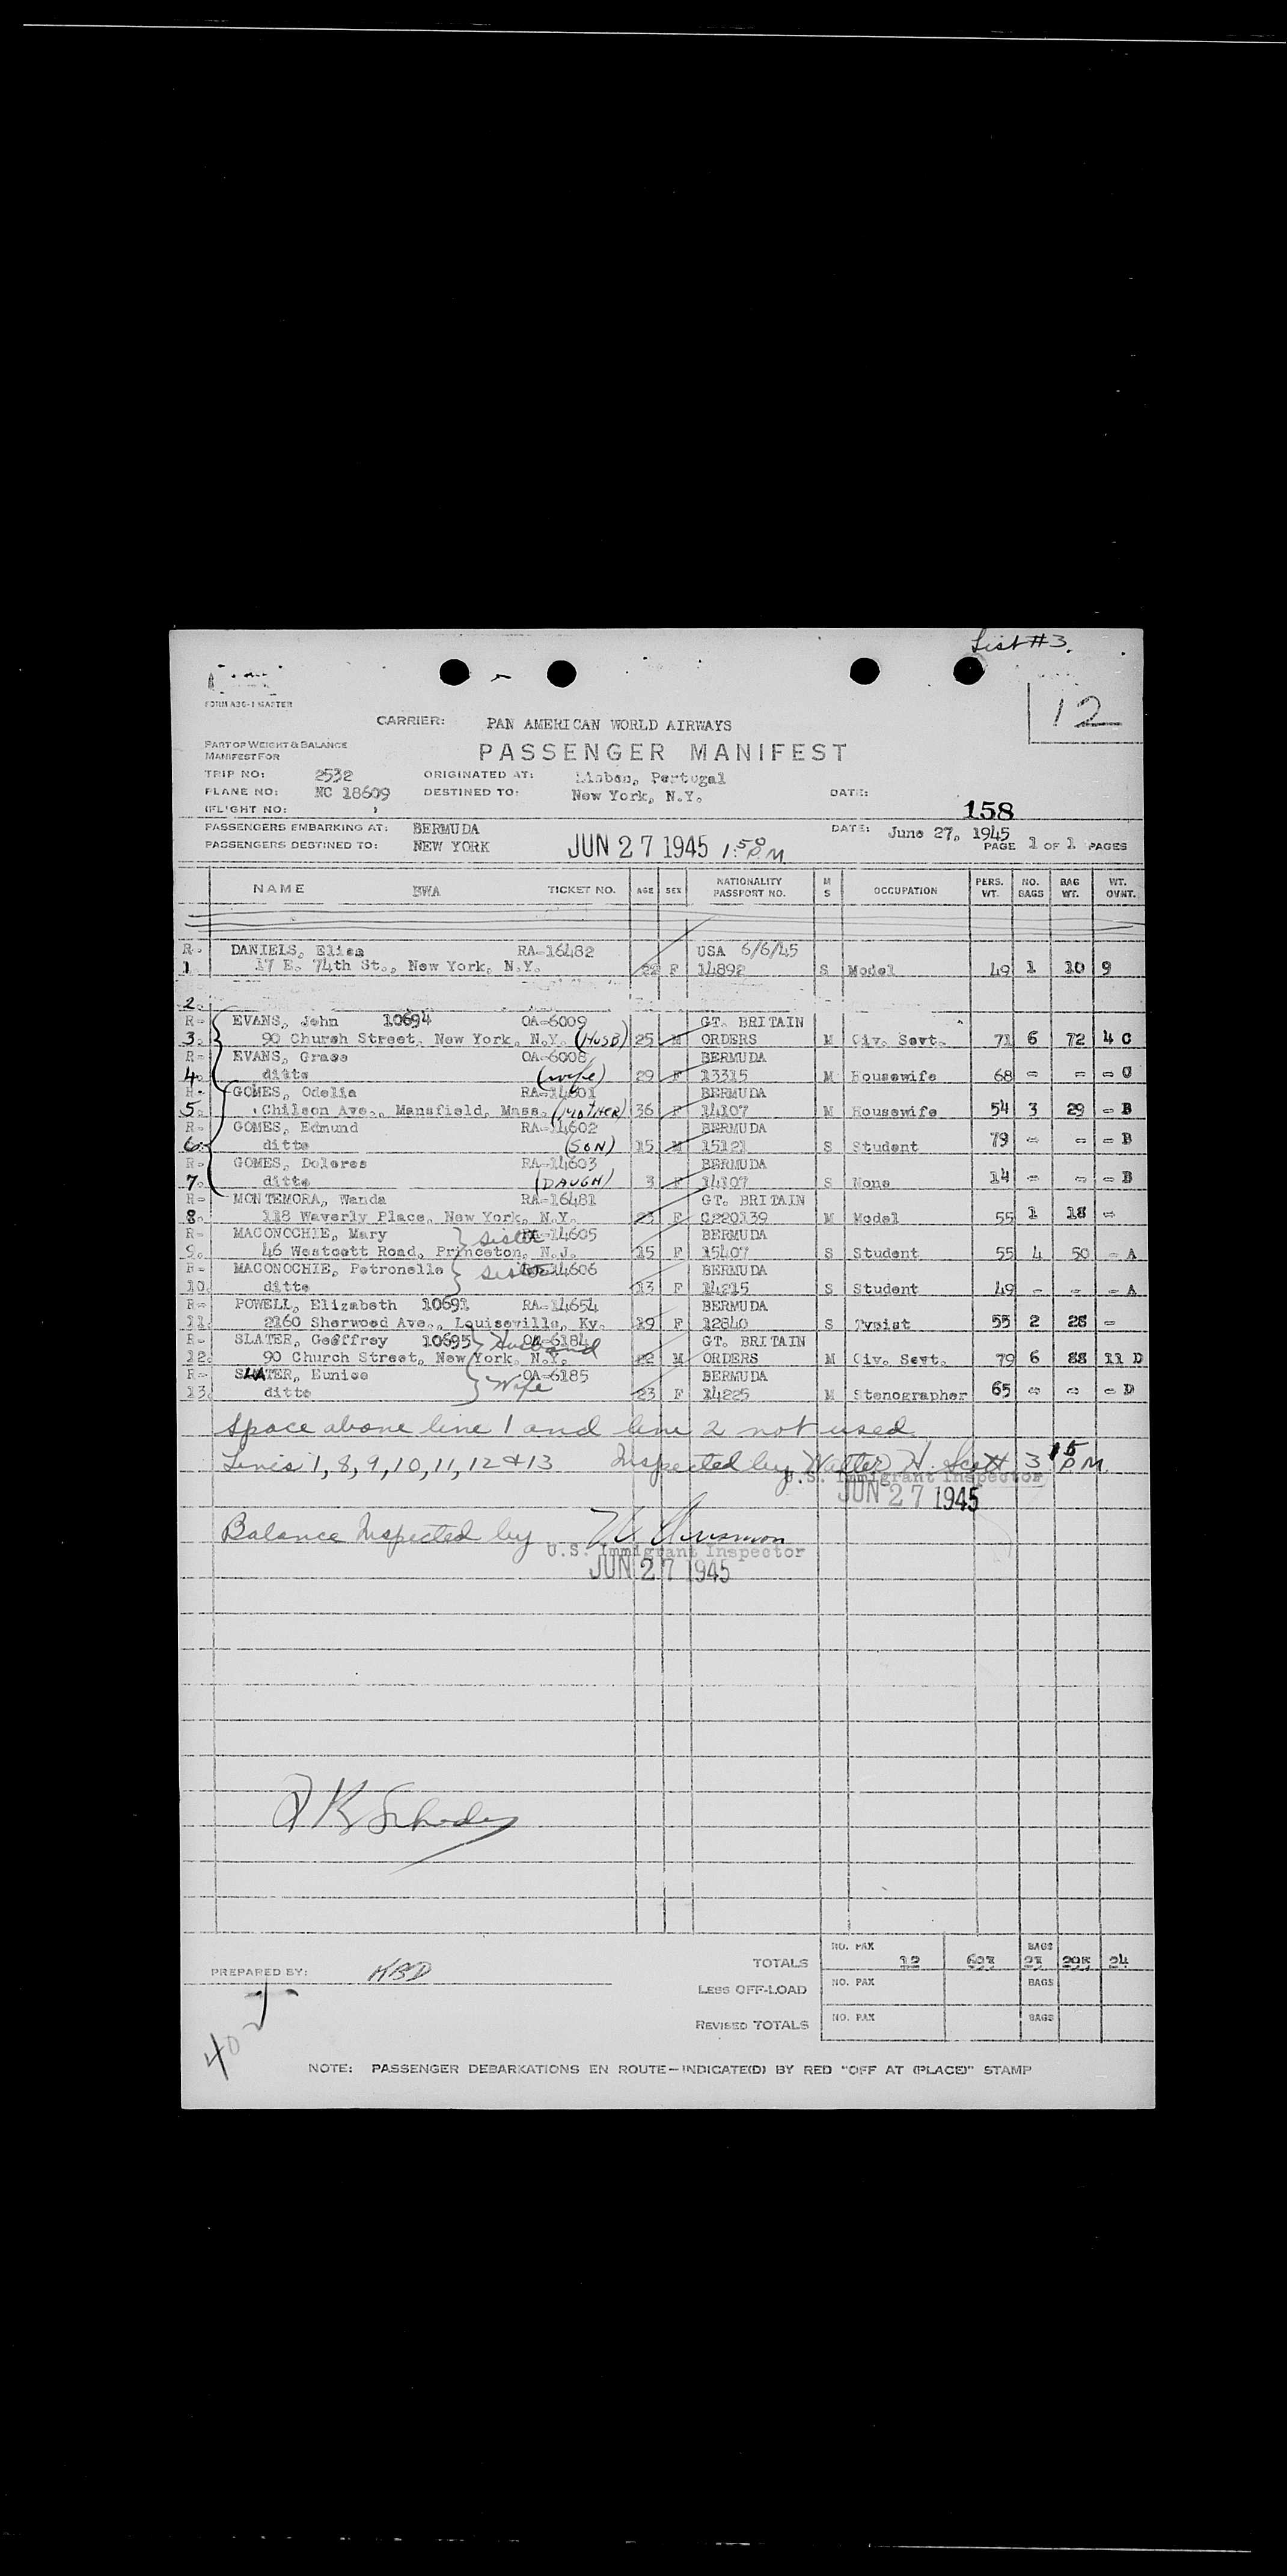 List #3.
FORM A36-1 MASTER
12
CARRIER: PAN AMERICAN WORLD AIRWAYS
PART OF WEIGHT & BALANCE
MANIFEST FOR
PASSENGER MANIFEST
TRIP NO: 2532 ORIGINATED AT: Lisbon, Portugal
PLANE NO: NC 18609 DESTINED TO: New York, N.Y. DATE:
(FLIGHT NO: )
158
PASSENGERS EMBARKING AT: BERMUDA DATE: June 27, 1945
PASSENGERS DESTINED TO: NEW YORK JUN 27 1945 1:50 PM PAGE 1 OF 1 PAGES
NAME BWA TICKET NO. AGE SEX NATIONALITY PASSPORT NO. M S OCCUPATION PERS. WT. NO. BAGS BAG WT. WT. OVNT.
R- DANIELS, Elisa RA-16482 USA 6/6/45
1. 17 E. 74th St., New York, N.Y. 22 F 14892 S Model 49 1 10 9
2.
R- EVANS, John 10694 OA-6009 GT. BRITAIN
3. 90 Church Street, New York, N.Y. (HUSB) 25 M ORDERS M Civ. Sevt. 71 6 72 4 C
R- EVANS, Grace OA-6008 BERMUDA
4. ditto (wife) 29 F 13315 M Housewife 68 - - - C
R- GOMES, Odelia RA-14601 BERMUDA
5. Chilson Ave., Mansfield, Mass. (MOTHER) 36 F 14107 M Housewife 54 3 29 - B
R- GOMES, Edmund RA-14602 BERMUDA
6. ditto (SON) 15 M 15121 S Student 79 - - - B
R- GOMES, Dolores RA-14603 BERMUDA
7. ditto (DAUGH) 3 F 14107 S None 14 - - - B
R- MONTEMORA, Wanda RA-16481 GT. BRITAIN
8. 118 Waverly Place, New York, N.Y. 23 F C220139 M Model 55 1 18 -
R- MACONOCHIE, Mary sister RA-14605 BERMUDA
9. 46 Westcott Road, Princeton, N.J. 15 F 15407 S Student 55 4 50 - A
R- MACONOCHIE, Petronella sister 14606 BERMUDA
10. ditto 13 F 14215 S Student 49 - - - A
R- POWELL, Elizabeth 10691 RA-14654 BERMUDA
11. 2160 Sherwood Ave., Louiseville, Ky. 19 F 12840 S Typist 55 2 28 -
R- SLATER, Geoffrey 10695 Husband OA-6184 GT. BRITAIN
12. 90 Church Street, New York, N.Y. 22 M ORDERS M Civ. Sevt. 79 6 88 11 D
R- SLATER, Eunice OA-6185 BERMUDA
13. ditto Wife 23 F 14225 M Stenographer 65 - - - D
Space above line 1 and line 2 not used
Lines 1, 8, 9, 10, 11, 12 & 13 Inspected by Walter H. Scott 3 15 PM
U.S. Immigrant Inspector
JUN 27 1945
Balance Inspected by
U.S. Immigrant Inspector
JUN 27 1945
TOTALS NO. PAX 12 BAGS 24
PREPARED BY: KBD
LESS OFF-LOAD NO. PAX BAGS
REVISED TOTALS NO. PAX BAGS
NOTE: PASSENGER DEBARKATIONS EN ROUTE—INDICATE(D) BY RED "OFF AT (PLACE)" STAMP